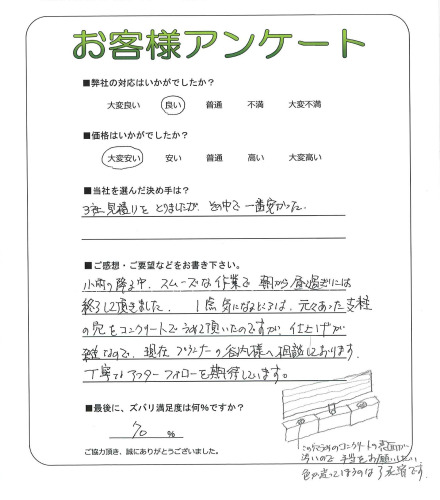 お客様アンケート
■弊社の対応はいかがでしたか？
大変良い 良い 普通 不満 大変不満
■価格はいかがでしたか？
大変安い 安い 普通 高い 大変高い
■当社を選んだ決め手は？
3社見積りをとりましたが、その中で一番安かった。
■ご感想・ご要望などをお書き下さい。
小雨の降る中、スムーズな作業で朝から昼過ぎには
終了して頂きました。1点気になるところは、元々あった支柱
の穴をコンクリートでうめて頂いたのですが、仕上げが
雑なので、現在プランナーの谷内様へ相談しております。
丁寧なアフターフォローを期待しています。
■最後に、ズバリ満足度は何％ですか？
70 ％
ご協力頂き、誠にありがとうございました。
この穴うめのコンクリートの表面が
ので 手当をお願いしたい。
色が違ってしまうのは了承済です。